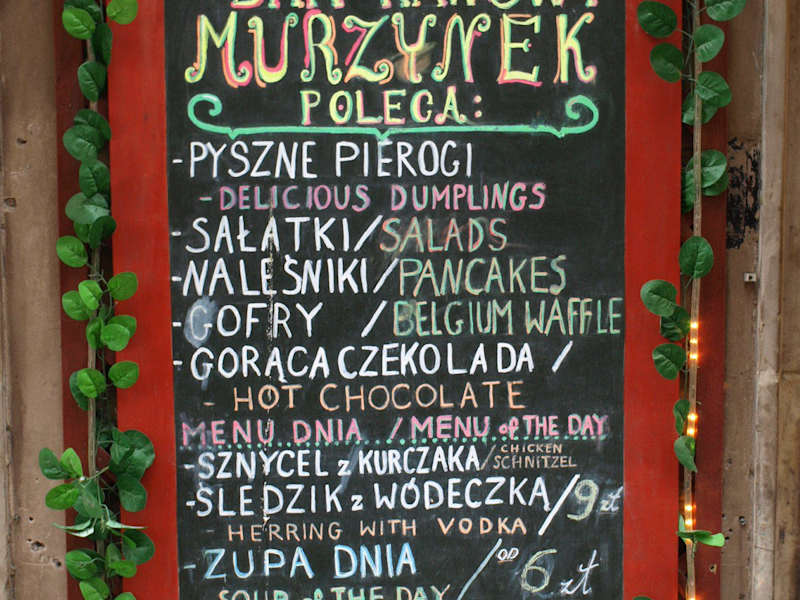 BAR KAWOWY
MURZYNEK
POLECA:
-PYSZNE PIEROGI
-DELICIOUS DUMPLINGS
-SAŁATKI/SALADS
-NALEŚNIKI/PANCAKES
-GOFRY /BELGIUM WAFFLE
-GORĄCA CZEKOLADA /
- HOT CHOCOLATE
MENU DNIA / MENU of THE DAY
-SZNYCEL z KURCZAKA/CHICKEN SCHNITZEL
-ŚLEDZIK z WÓDECZKĄ/9 zł
- HERRING WITH VODKA
-ZUPA DNIA /OD 6 zł
SOUP of THE DAY